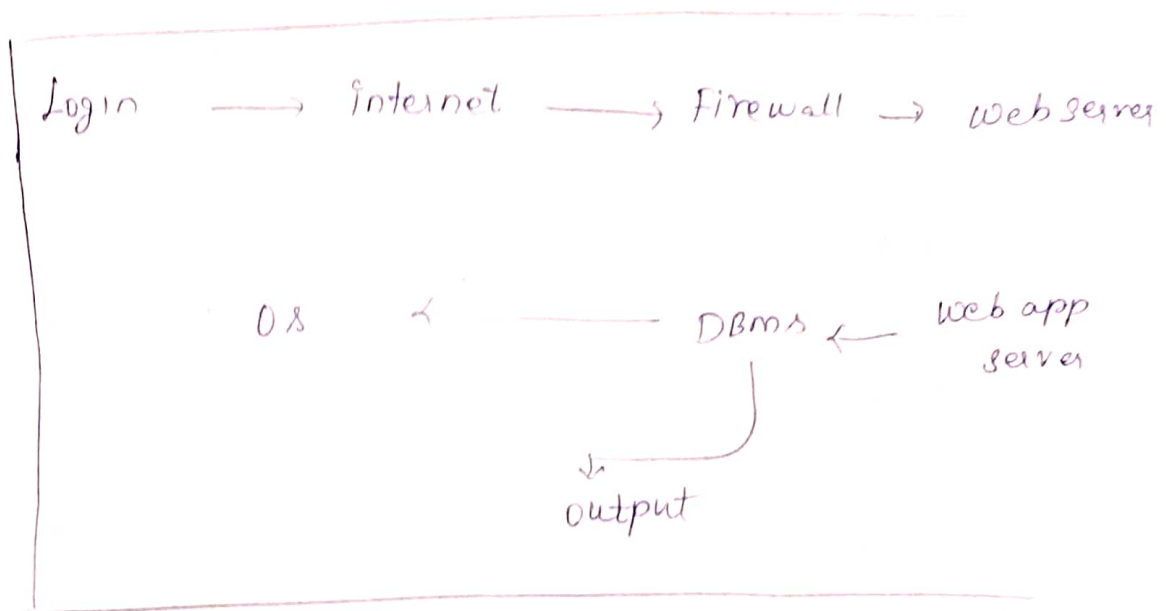 Login → internet → Firewall → web server
OS ← DBMS ← web app
server
output